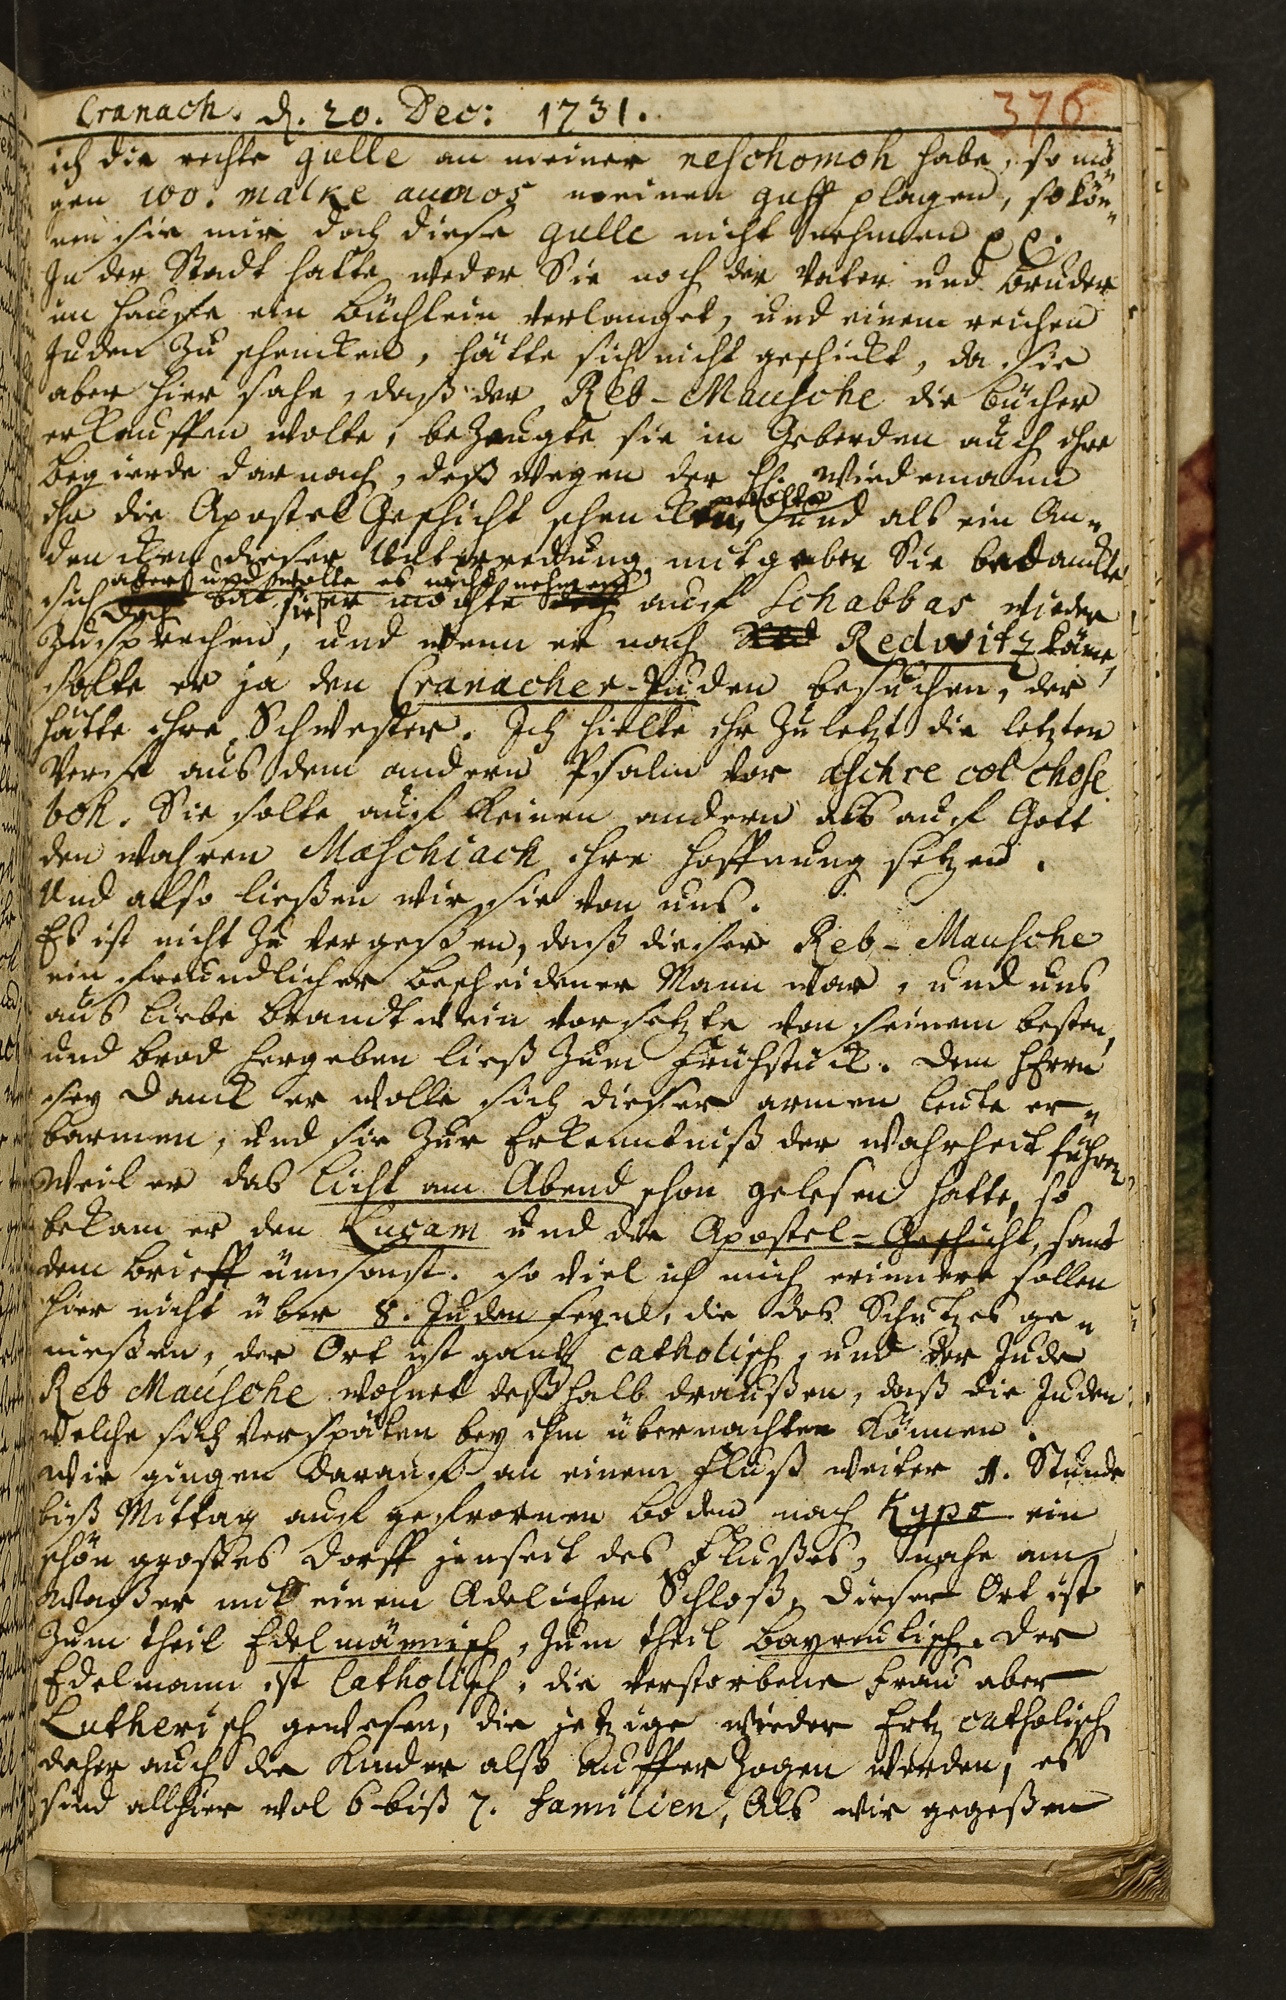 Cranach. d. 20. Dec: 1731.
376
ich die rechte gülle an meiner neschomoh habe, so mö
gen 100. malke aumos meinen guff plagen, so kön„
nen sie mir doch diese gulle nicht nehmen pp.
In der Stadt hatte weder Sie noch der Vater und Bruder
im Hauße ein Büchlein verlanget, und einem reichen
Juden zu schencken, hätte sich nicht geschickt, da sie
aber hier sahe, daß der Reb-Mausche die Bücher
erkauffen wolte, bezeugte sie in Geberden auch ihre
Begierde darnach, deßwegen der H. Wiedemann
ihr die Apostel Geschicht schencken wolte, und als ein An„
dencken dieser Unterredung mitgeben Sie bedanckte
sich aber und wolte es nicht nehmen
doch bat sie er möchte auf Schabbas wieder
zusprechen, und wenn er nach Redwitz käme,
solte er ja den Cranacher-Juden besuchen, der
hätte ihre Schwester. Ich hielte ihr zuletzt die letzten
Verse aus dem andern Psalm vor aschre col chose
boh. Sie solte auf keinen andern als auf Gott
den wahren Maschiach ihre Hoffnung setzen.
Und also ließen wir sie von uns.
Es ist nicht zu vergeßen, daß dieser Reb-Mausche
ein freundlicher bescheidener Mann war, und uns
aus Liebe Brandtwein vorsetzte von seinem besten,
und Brod hergeben ließ zum Frühstück. Dem HErrn
sey Danck er wolle sich dieser armen Leute er„
barmen, und sie zur Erkenntniß der Wahrheit führen,
Weil er das Licht am Abend schon gelesen hatte, so
bekam er den Lucam und die Apostel-Geschicht, samt
dem Brieff ümsonst. so viel ich mich erinnere sollen
hier nicht über 8. Juden seyn, die des Schutzes ge„
niessen, der Ort ist gantz catholisch, und der Jude
Reb Mausche wohnet deßhalb draußen, daß die Juden
welche sich verspäten bey ihm übernachten können.
Wir gingen darauf an einem Fluß weiter 1. Stunde
biß Mittag auf gefrornen Boden nach Kyps ein
schön grosses Dorff jenseit des Flußes, nahe am
Waßer mit einem Adelichen Schloß, dieser Ort ist
zum theil Edelmännisch, zum theil Bayreutisch. Der
Edelmann ist Catholisch, die verstorbene Frau aber
Lutherisch gewesen, die jetzige wieder Ertz catholisch
daher auch die Kinder also aufferzogen werden, es
sind allhier wol 6 biß 7. Familien, Als wir gegeßen